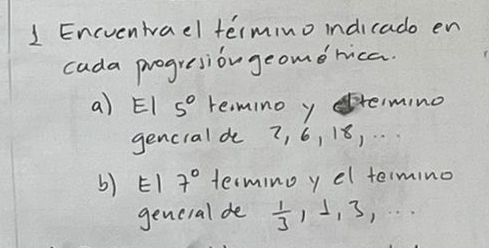 1 Encuentra el término indicado en
cada progresión geométrica.
a) El 5º termino y el termino
general de 2, 6, 18, ...
b) El 7º termino y el termino
general de 1/3, 1, 3, ...